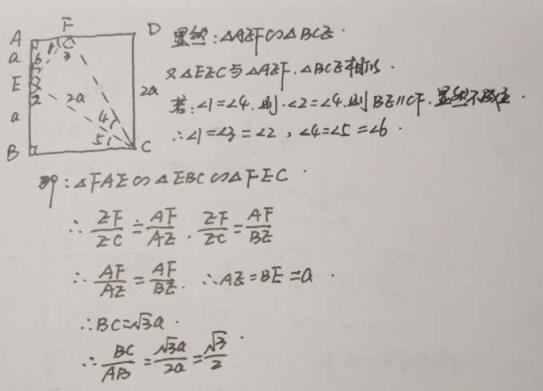 A F D
a 6 1 3
E 2a 2a
2
a 4
5
B C
显然:△AEF∽△BCE.
又△EFC与△AEF.△BCE相似.
若:∠1=∠4.则.∠2=∠4.则BE∥CF.显然不成立
∴∠1=∠3=∠2,∠4=∠5=∠6.
即:△FAE∽△EBC∽△FEC.
∴EF/EC=AF/AE.EF/EC=AF/BE
∴AF/AE=AF/BE.∴AE=BE=a.
∴BC=√3a.
∴BC/AB=√3a/2a=√3/2.